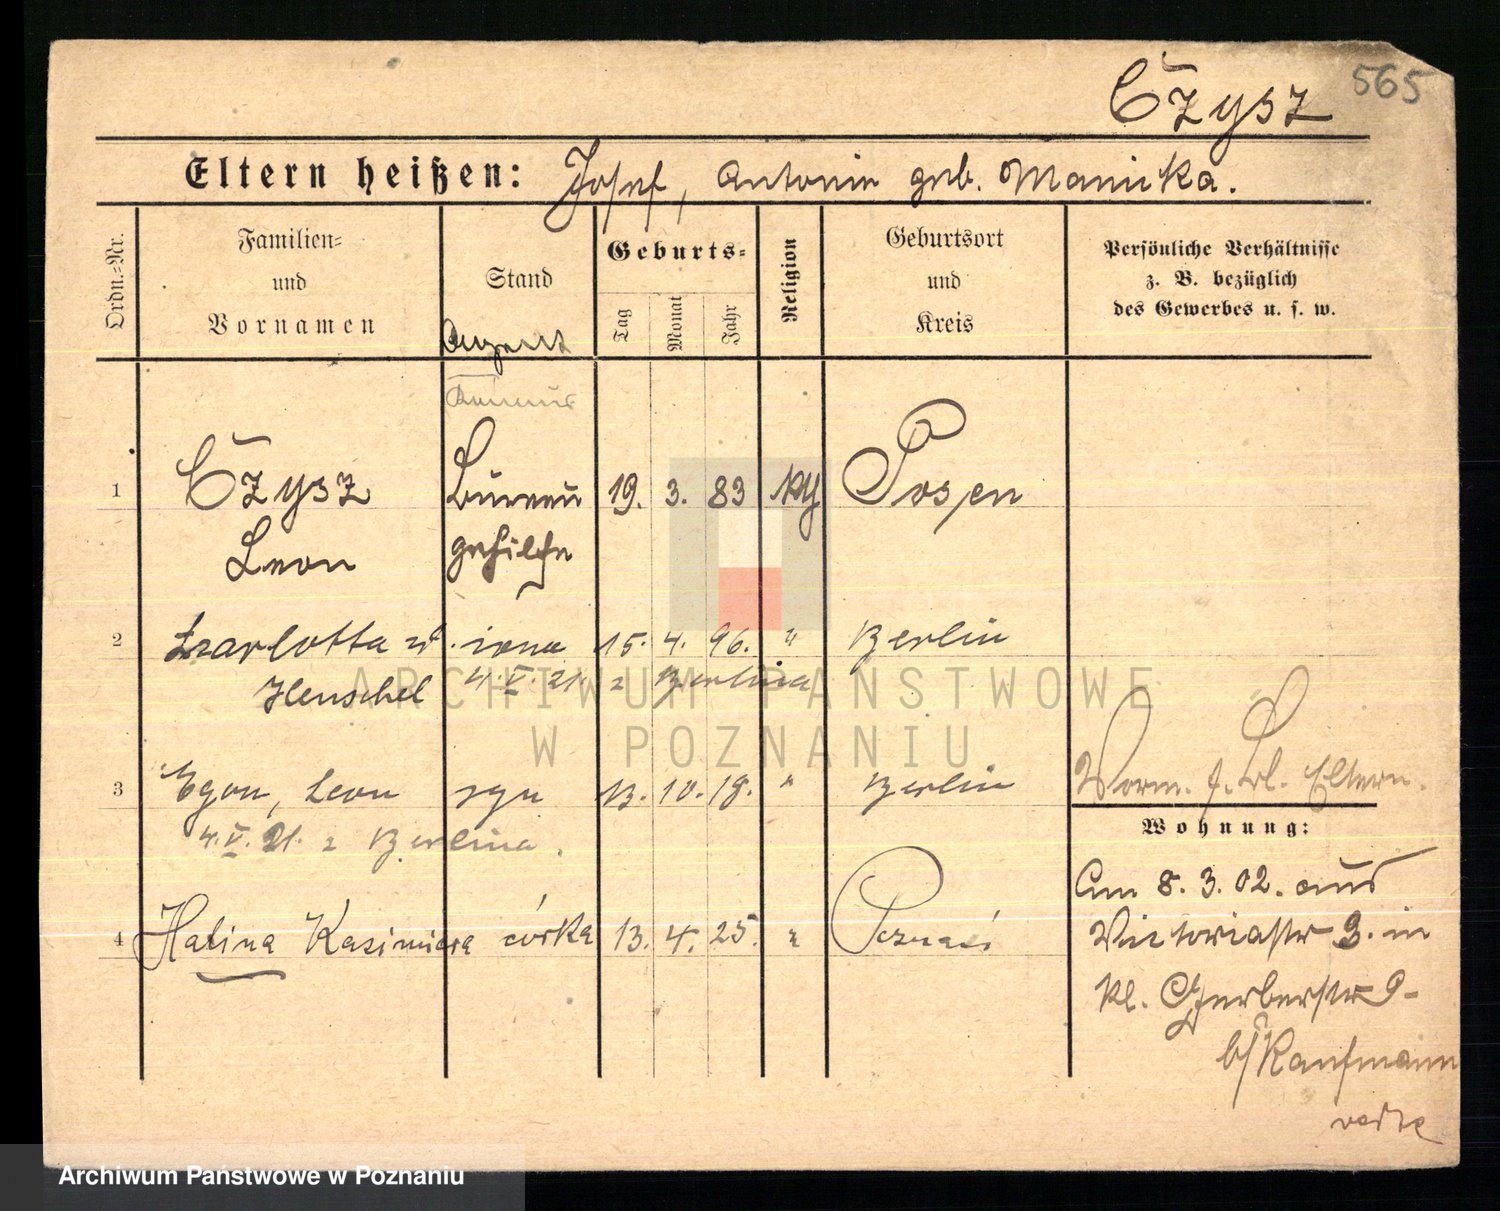 565
Czysz
Eltern heißen: Josef, Antonie geb. Manicka.
Ordn.=Nr.
Familien=
und
Vornamen
Stand
Geburts=
Tag
Monat
Jahr
Religion
Geburtsort
und
Kreis
Persönliche Verhältnisse
z. B. bezüglich
des Gewerbes u. s. w.
Agent
1 Czysz Bureau 19. 3. 83 kth Posen
Leon gehilfe
2 Szarlotta zd. żona 15. 4. 96. " Berlin
Henschel 4.V.21. z Berlina
3 Egon, Leon syn 13. 10. 19. " Berlin
4.V.21. z Berlina.
Wohnung:
4 Halina Kazimiera córka 13. 4. 25. " Poznań
Am 8. 3. 02. aus
Victoriastr 3. in
Kl. Gerberstr 9-
b/ Kaufmann
ARCHIWUM PAŃSTWOWE
W POZNANIU
Archiwum Państwowe w Poznaniu